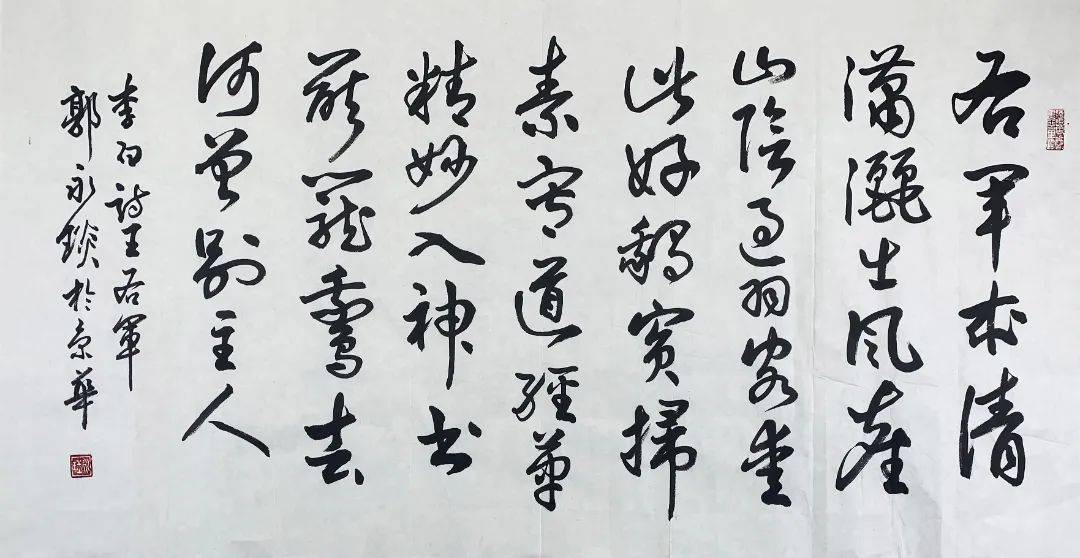 右軍本清
瀟灑出風塵
山陰過羽客愛
此好鵝賓掃
素寫道經筆
精妙入神書
罷籠鵞去
何曾別主人
李白詩王右軍
郭永錟於京華